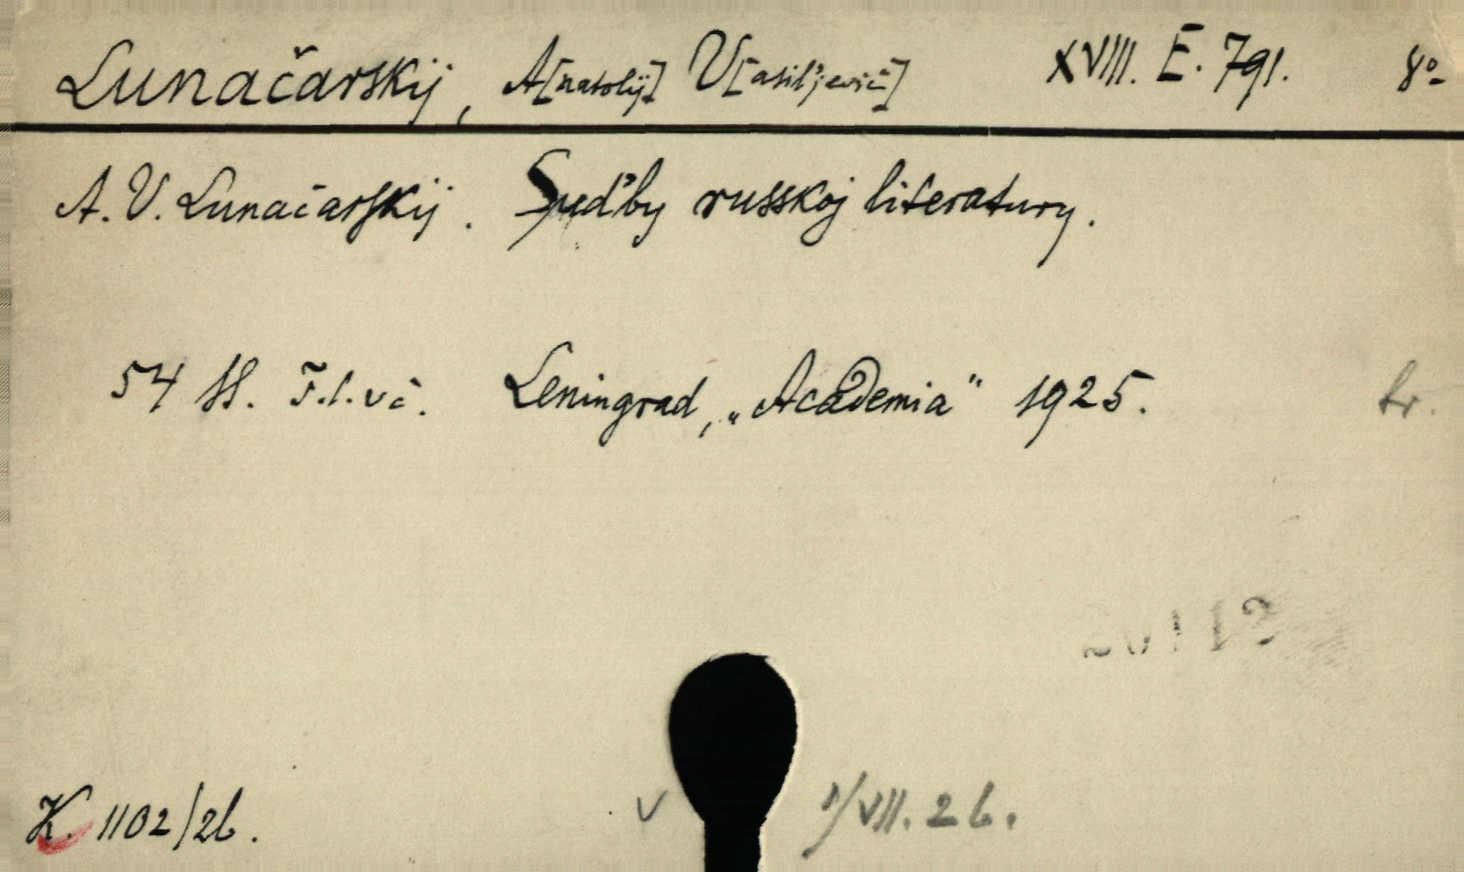 Lunačarskij, A[natolij] V[asil'jevič] XVIII. E. 791. 8º
A. V. Lunačarskij. Sud'by russkoj literatury.
54 SS. Leningrad, „Academia“ 1925. br.
K. 1102/26. v /VII. 26.